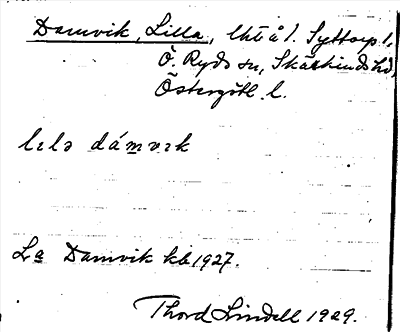 Damvik, Lilla, lht å 1. Syttorp 1,
Ö. Ryds sn, Skärkinds hd,
Östergötl. l.
lɩlə dámvɩk
La Damvik kb 1927.
Thord Lindell 1929.